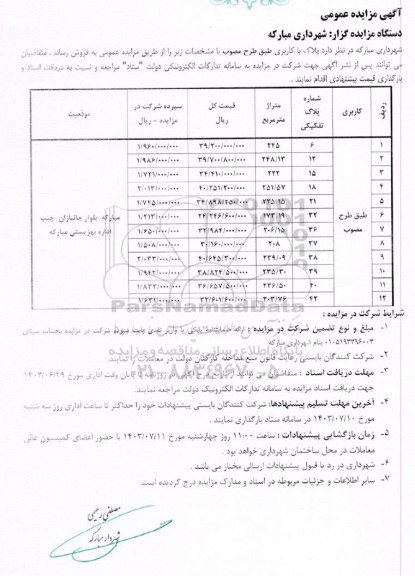 آگهی مزایده عمومی
دستگاه مزایده گزار: شهرداری مبارکه
شهرداری مبارکه در نظر دارد پلاک با کاربری طبق طرح مصوب با مشخصات زیر را از طریق مزایده عمومی به فروش رساند. متقاضیان
می توانند پس از نشر آگهی جهت شرکت در مزایده به سامانه تدارکات الکترونیکی دولت "ستاد" مراجعه و نسبت به دریافت اسناد و
بارگذاری قیمت پیشنهادی اقدام نمایند.
ردیف کاربری شماره پلاک تفکیکی متراژ مترمربع قیمت کل ریال سپرده شرکت در مزایده - ریال موقعیت
۱ ۶ ۲۴۵ ۳۹/۲۰۰/۰۰۰/۰۰۰ ۱/۹۶۰/۰۰۰/۰۰۰
۲ ۱۲ ۲۴۸/۱۳ ۳۹/۷۰۰/۸۰۰/۰۰۰ ۱/۹۸۶/۰۰۰/۰۰۰
۳ ۱۵ ۲۲۲ ۳۴/۴۱۰/۰۰۰/۰۰۰ ۱/۷۲۱/۰۰۰/۰۰۰
۴ ۱۸ ۲۵۱/۵۷ ۴۰/۲۵۱/۲۰۰/۰۰۰ ۲/۰۱۳/۰۰۰/۰۰۰
۵ ۲۱ ۲۲۵/۱۵ ۳۴/۸۹۸/۲۵۰/۰۰۰ ۱/۷۴۵/۰۰۰/۰۰۰
۶ طبق طرح ۲۲ ۱۷۳/۱۹ ۲۴/۲۴۶/۶۰۰/۰۰۰ ۱/۲۱۳/۰۰۰/۰۰۰ مبارکه-بلوار جانبازان-جنب
۷ مصوب ۳۶ ۲۰۶/۱۵ ۳۲/۹۸۴/۰۰۰/۰۰۰ ۱/۶۵۰/۰۰۰/۰۰۰ اداره بهزیستی مبارکه
۸ ۳۷ ۲۰۸ ۳۰/۱۶۰/۰۰۰/۰۰۰ ۱/۵۰۸/۰۰۰/۰۰۰
۹ ۳۸ ۲۳۹/۰۹ ۴۰/۶۴۵/۳۰۰/۰۰۰ ۲/۰۳۳/۰۰۰/۰۰۰
۱۰ ۳۹ ۲۳۵/۳۰ ۳۸/۸۲۴/۵۰۰/۰۰۰ ۱/۹۴۲/۰۰۰/۰۰۰
۱۱ ۴۰ ۲۳۶/۵۰ ۳۶/۶۵۷/۵۰۰/۰۰۰ ۱/۸۳۳/۰۰۰/۰۰۰
۱۲ ۴۲ ۲۰۳/۷۶ ۳۲/۶۰۱/۶۰۰/۰۰۰ ۱/۶۳۱/۰۰۰/۰۰۰
ParsNamadData
پایگاه اطلاع رسانی مناقصه و مزایده
شرایط شرکت در مزایده :
۱- مبلغ و نوع تضمین شرکت در مزایده : ارائه ضمانتنامه بانکی یا واریز نقدی بابت سپرده شرکت در مزایده بحساب سیبای
۰۱۰۵۱۹۳۳۹۶۰۰۳ بنام شهرداری مبارکه
۲- شرکت کنندگان بایستی رعایت قانون منع مداخله کارکنان دولت در معاملات را نمایند.
۳- مهلت دریافت اسناد : متقاضیان می توانند از تاریخ درج آگهی در روزنامه تا پایان وقت اداری مورخ ۱۴۰۳/۰۶/۲۹
جهت دریافت اسناد مزایده به سامانه تدارکات الکترونیک دولت مراجعه نمایند.
۴- آخرین مهلت تسلیم پیشنهادها: شرکت کنندگان بایستی پیشنهادات خود را حداکثر تا ساعت اداری روز سه شنبه
مورخ ۱۴۰۳/۰۷/۱۰ در سامانه ستاد بارگذاری نمایند.
۵- زمان بازگشایی پیشنهادات : ساعت ۱۱:۰۰ روز چهارشنبه مورخ ۱۴۰۳/۰۷/۱۱ با حضور اعضای کمیسیون عالی
معاملات در محل ساختمان شهرداری خواهد بود.
۶- شهرداری در رد یا قبول پیشنهادات ارسالی مختار می باشد.
۷- سایر اطلاعات و جزئیات مربوطه در اسناد و مدارک مزایده درج گردیده است.
مصطفی رحیمی
شهردار مبارکه